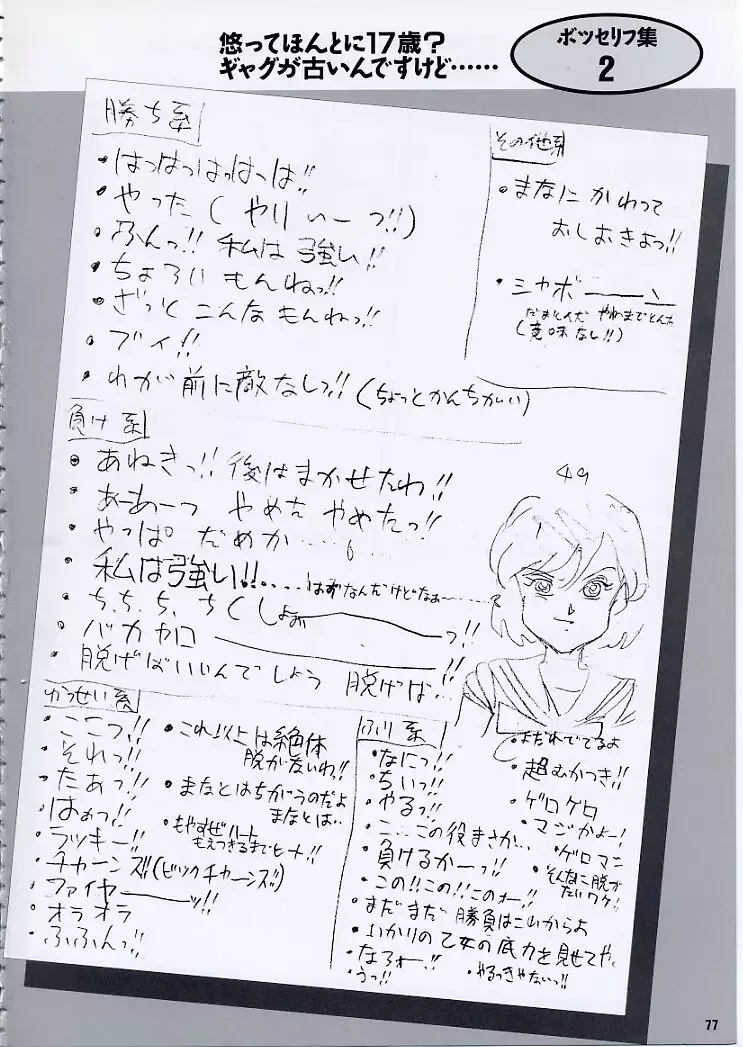 悠ってほんとに17歳?
ギャグが古いんですけど……
ボツセリフ集
2
勝ち系
・はっはっはっはっは!!
・やった(やりぃーっ!!)
・ふんっ!! 私は強い!!
・ちょろいもんねっ!!
・ざっとこんなもんねっ!!
・ブイ!!
・わが前に敵なしっ!!(ちょっとかんちがい)
その他系
・まなにかわって
おしおきよっ!!
・シャボーーン
だまとんだ やねまでとんだ
(意味なし!!)
負け系
・あねきっ!! 後はまかせたわ!!
・あーあーっ やめた やめたっ!!
・やっぱ だめか……
・私は強い!!....はずなんだけどなぁ……
・ち、ち、ち、ちくしょぉーーっ!!
・バカヤローーー!!
・脱げばいいんでしょう 脱げば!!
49
かっせい系
・ここっ!!
・それっ!!
・たぁっ!!
・はぁっ!!
・ラッキー!!
・チャーンズ(ビックチャーンズ)
・ファイヤーーッ!!
・オラオラ
・ふふんっ!!
・これ以上は絶体
脱がないわ!!
・まなとはちがうのだよ
まなとは..
・もやすぜハート
もえつきるまでヒート!!
ふり系
・なにっ!!
・ちいっ!!
・やるっ!!
・こ...この役まさか...
・負けるかーっ!!
・この!!この!!このォー!!
・まだまだ勝負はこれからよ
・いかりの乙女の底力を見せてや
・なろォー!!
・うっ!!
・やるっきゃないっ!!
・まだれでてるよ
・超むかつき!!
・ゲロゲロ
・マジかよー!
・ゲロマニ
・そんなに脱が
たいワケ!
77